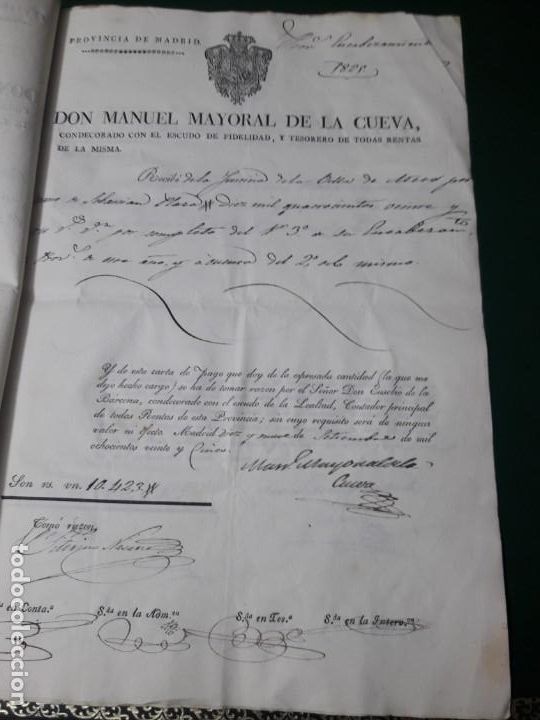 PROVINCIA DE MADRID.
Encabezamient
1825
DON MANUEL MAYORAL DE LA CUEVA,
CONDECORADO CON EL ESCUDO DE FIDELIDAD, Y TESORERO DE TODAS RENTAS
DE LA MISMA.
Recibí de la Justicia de la Villa de por
Diez mil quatrocientos veinte y
por completo del 3º a su
de este año, y a cuenta del 2º del mismo.
Y de este carta de pago que doy de la espresada cantidad (la que me
dejo hecho cargo) se ha de tomar razon por el Señor Don Eusebio de la
Barcena, condecorado con el escudo de la Lealtad, Contador principal
de todas Rentas de esta Provincia; sin cuyo requisito será de ningun
valor ni efecto. Madrid diez y nueve de Setiembre de mil
ochocientos veinte y Cinco.
Man.l Mayoral de la
Cueva
Son rs. vn. 10.423
Tomó razon,
en Conta.ª
S.da en la Adm.on
S.da en Tes.ª
S.da en la Interv.on
todocoleccion